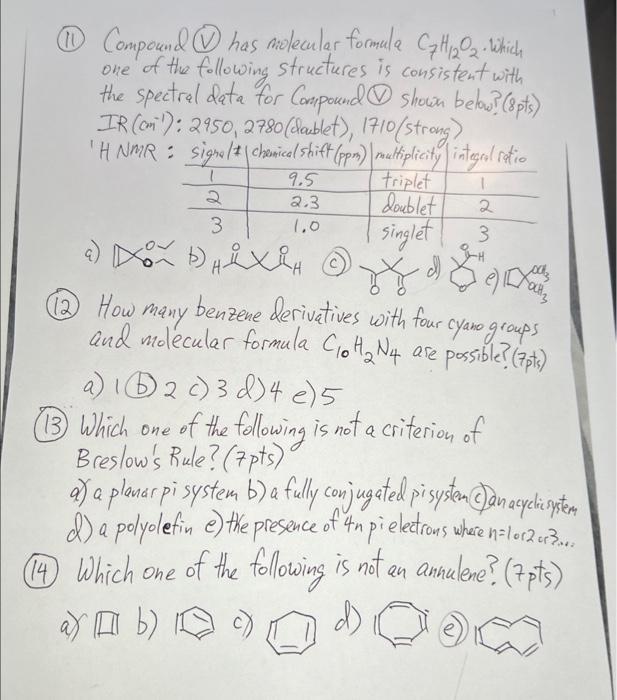 (11) Compound (V) has molecular formula C7H12O2. Which
one of the following structures is consistent with
the spectral data for Compound (V) shown below? (8pts)
IR (cm-1): 2950, 2780 (doublet), 1710 (strong)
1H NMR: signal # chemical shift (ppm) multiplicity integral ratio
1 9.5 triplet 1
2 2.3 doublet 2
3 1.0 singlet 3
a) O O b) H O O H c) O O d) O H O e) OCH3 OCH3
(12) How many benzene derivatives with four cyano groups
and molecular formula C10H2N4 are possible? (7pts)
a) 1 b) 2 c) 3 d) 4 e) 5
(13) Which one of the following is not a criterion of
Breslow's Rule? (7pts)
a) a planar pi system b) a fully conjugated pi system c) an acyclic system
d) a polyolefin e) the presence of 4n pi electrons where n=1 or 2 or 3....
(14) Which one of the following is not an annulene? (7pts)
a) b) c) d) e)